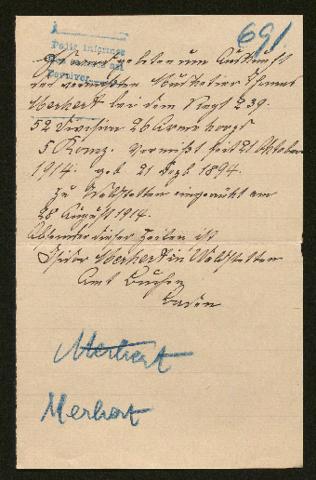 691
Prière informer
[...]
wird gebeten um Auskunft
des vermißten Musketier Thomas
Merkert bei dem Regt 239.
52 Division 26 Armee Korps
5 Komp. vermißt seit 21 Oktober
1914. geb 21 Dezb 1894.
zu Waldstetten eingerückt am
28 August 1914.
Absender dieser Zeilen ist
Isidor Merkert in Waldstetten
Amt Buchen
Baden
Merkert
Merkert